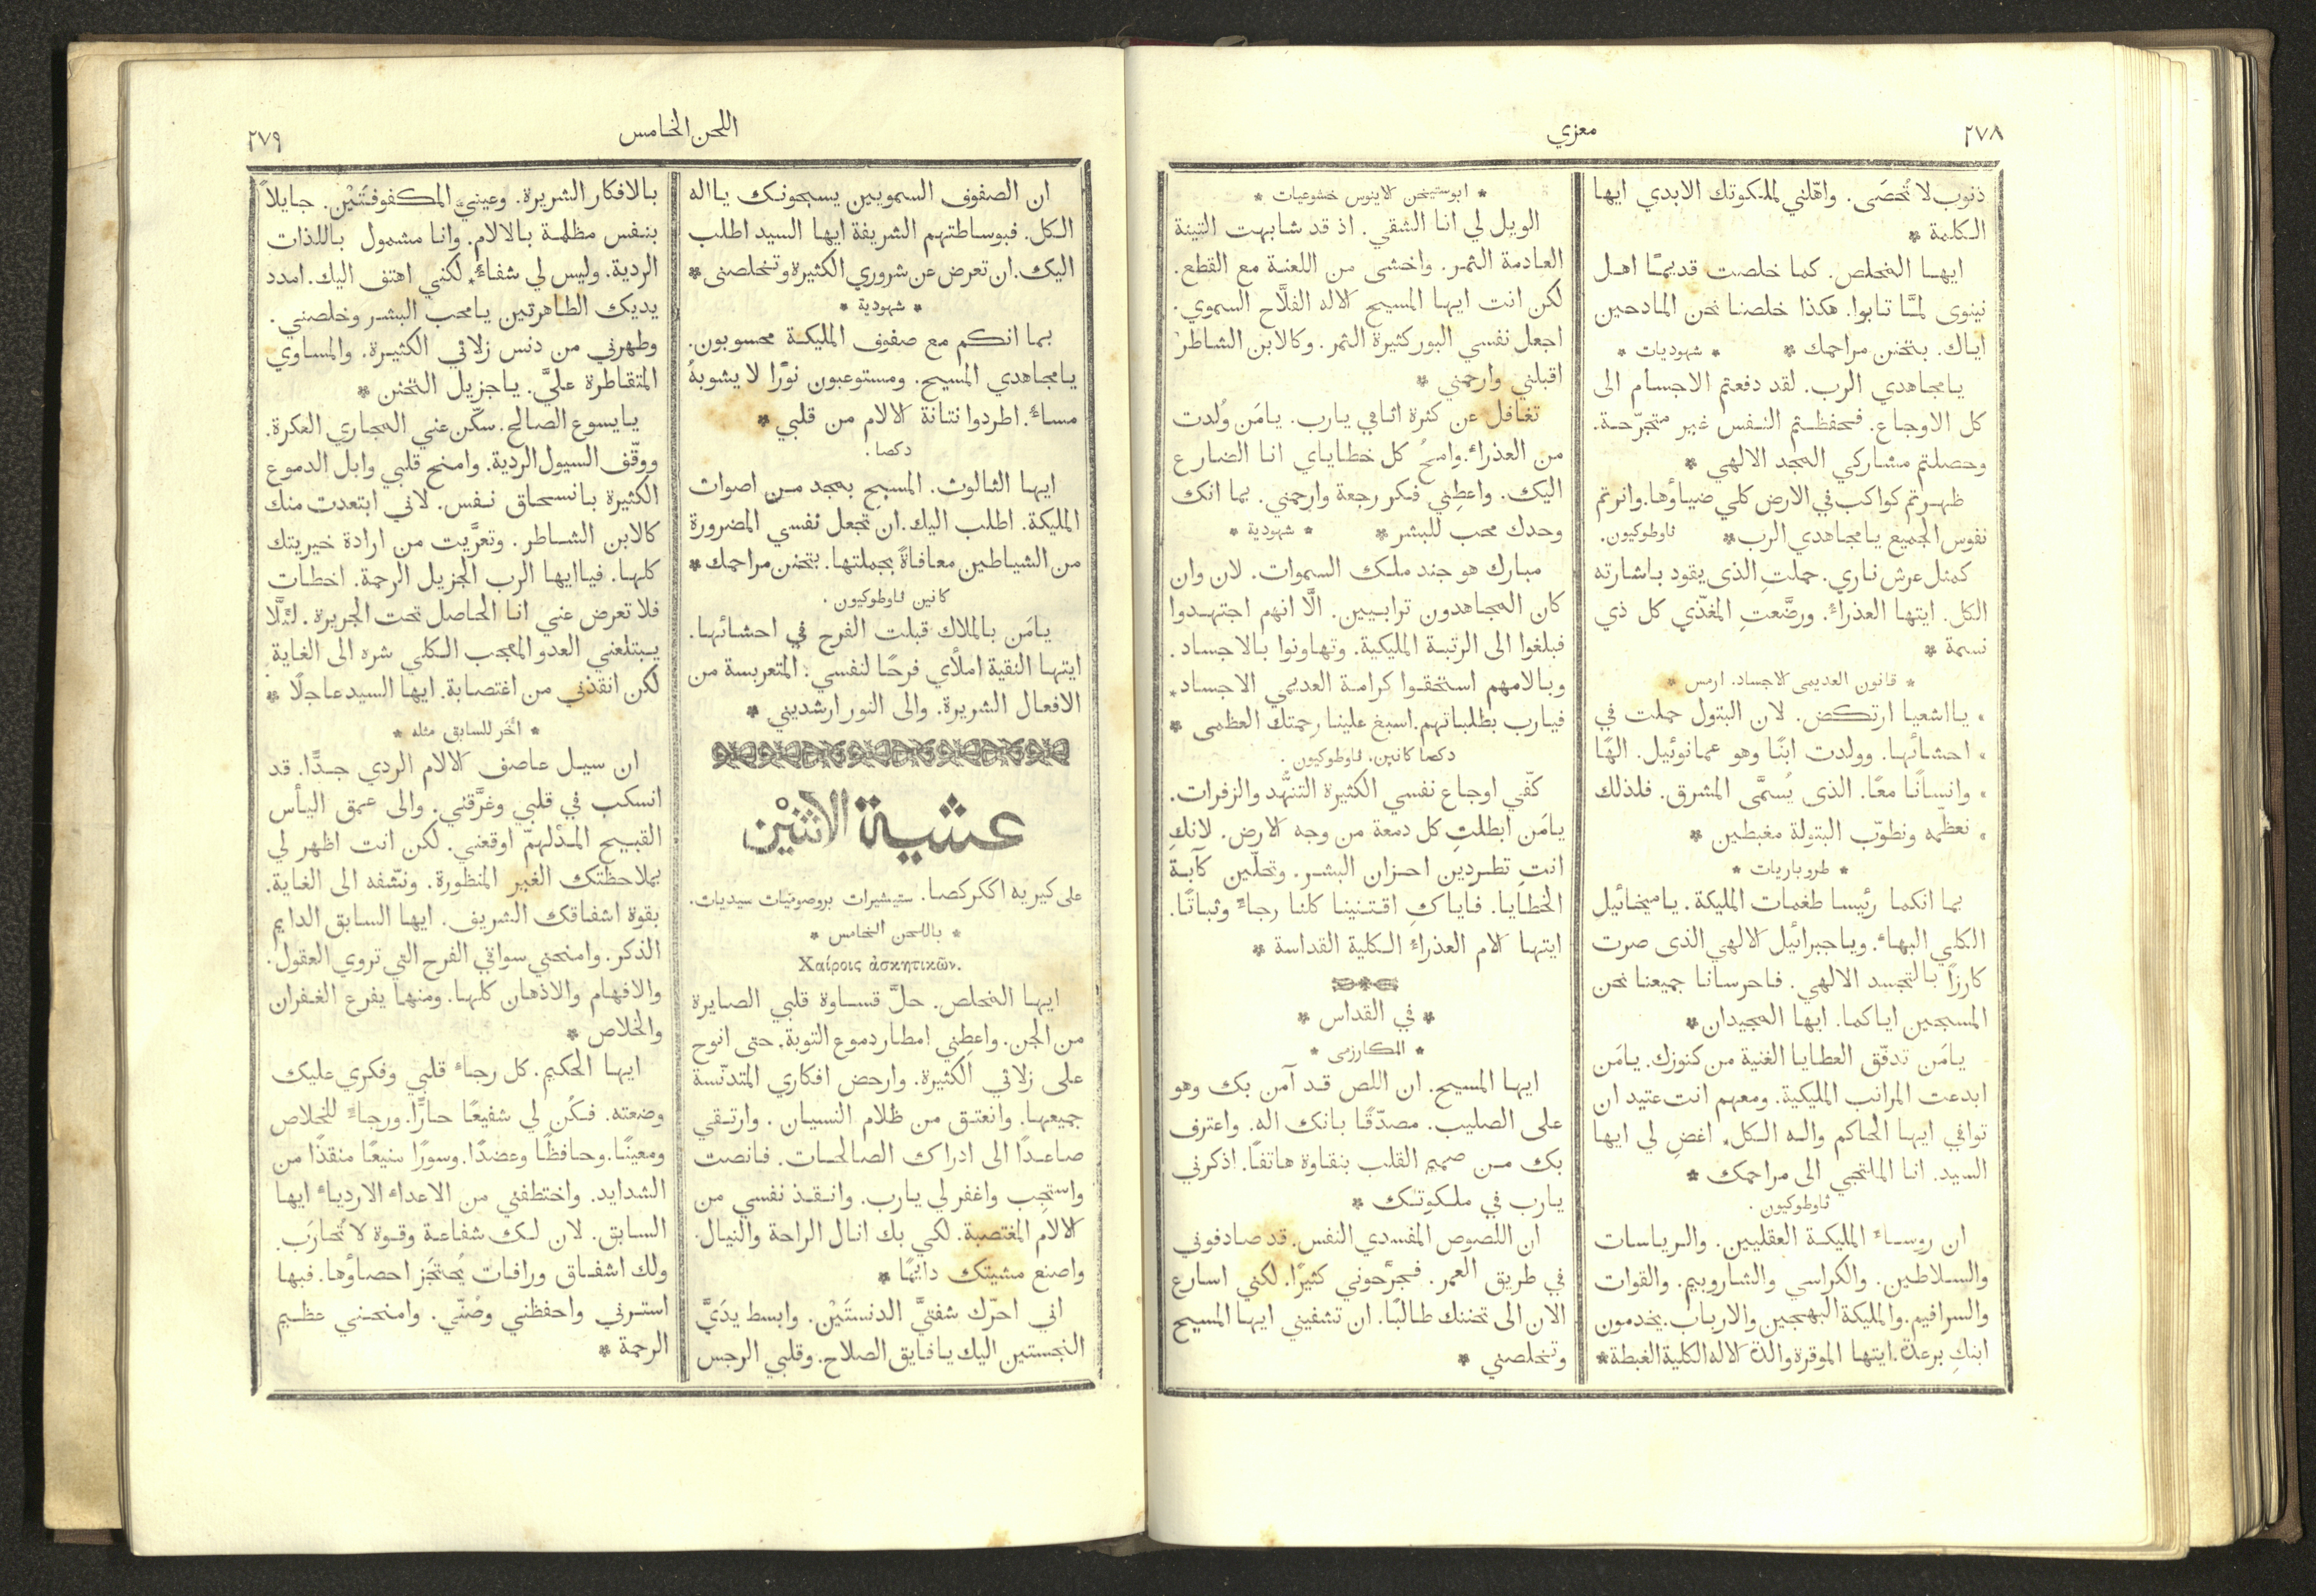 ٢٧٨
معزي
ذنوب لا تُحصَى. واهّلني لملكوتك الابدي ايها
الكلمة *
ايها المخلص. كما خلصت قديمًا اهل
نينوى لمَّا تابوا. هكذا خلصنا نحن المادحين
اياك. بتحنن مراحمك * * شهوديات *
يا مجاهدي الرب. لقد دفعتم الاجسام الى
كل الاوجاع. فحفظتم النفس غير متجرّحة.
وحصلتم مشاركي المجد الالهي *
ظهرتم كواكب في الارض كلي ضياؤها. وانرتم
نفوس الجميع يا مجاهدي الرب * ثاوطوكيون.
كمثل عرش ناري. حملتِ الذى يقود باشارته
الكل. ايتها العذراء. ورضَّعتِ المغذّي كل ذي
نسمة *
* قانون العديمي الاجساد. ارمس *
يا اشعيا ارتكض. لان البتول حملت في
احشائها. وولدت ابنًا وهو عمانوئيل. الهًا
وانسانًا معًا. الذى يُسمَّى المشرق. فلذلك
نعظّمه ونطوّب البتولة مغبطين *
* طروباريات *
بما انكما رئيسا طغمات المليكة. يا ميخائيل
الكلي البهاء. ويا جبرائيل الالهي الذى صرت
كارزًا بالتجسد الالهي. فاحرسانا جميعنا نحن
المسبحين اياكما. ايها المجيدان *
يامَن تدفّق العطايا الغنية من كنوزك. يامَن
ابدعت المراتب المليكية. ومعهم انت عتيد ان
توافي ايها الحاكم واله الكل. اغضِ لي ايها
السيد. انا الملتجي الى مراحمك *
ثاوطوكيون.
ان روساء المليكة العقليين. والرياسات
والسلاطين. والكراسي والشاروبيم. والقوات
والسرافيم. والمليكة البهجين والارباب. يخدمون
ابنكِ برعدة. ايتها الموقرة والدة الاله الكلية الغبطة *
* ابوستيخن كاينوس خشوعيات *
الويل لي انا الشقي. اذ قد شابهت التينة
العادمة الثمر. واخشى من اللعنة مع القطع.
لكن انت ايها المسيح الاله الفلَّاح السموي.
اجعل نفسي البور كثيرة الثمر. وكالابن الشاطر
اقبلني وارحمني *
تغافل عن كثرة اثامي يارب. يامَن وُلدت
من العذراء. وامحُ كل خطاياي انا الضارع
اليك. واعطِني فكر رجعة وارحمني. بما انك
وحدك محب للبشر * * شهودية *
مبارك هو جند ملك السموات. لان وان
كان المجاهدون ترابيين. الَّا انهم اجتهدوا
فبلغوا الى الرتبة المليكية. وتهاونوا بالاجساد.
وبالامهم استحقوا كرامة العديمي الاجساد.
فيارب بطلباتهم. اسبغ علينا رحمتك العظمى *
دكصا كانين. ثاوطوكيون.
كفّي اوجاع نفسي الكثيرة التنهُّد والزفرات.
يامَن ابطلتِ كل دمعة من وجه الارض. لانكِ
انتِ تطردين احزان البشر. وتحلّين كآبة
الخطايا. فاياكِ اقتنينا كلنا رجاءً وثباتًا.
ايتها الام العذراء الكلية القداسة *
* في القداس *
* المكارزمى *
ايها المسيح. ان اللص قد آمن بك وهو
على الصليب. مصدّقًا بانك اله. واعترف
بك من صميم القلب بنقاوة هاتفًا. اذكرني
يارب في ملكوتك *
ان اللصوص المفسدي النفس. قد صادفوني
في طريق العمر. فجرَّحوني كثيرًا. لكني اسارع
الان الى تحننك طالبًا. ان تشفيني ايها المسيح
وتخلصني *
اللحن الخامس
٢٧٩
ان الصفوف السمويين يسبحونك يا اله
الكل. فبوساطتهم الشريفة ايها السيد اطلب
اليك. ان تعرض عن شروري الكثيرة وتخلصني *
* شهودية *
بما انكم مع صفوف المليكة محسوبون.
يا مجاهدي المسيح. ومستوعبون نورًا لا يشوبهُ
مساءٌ. اطردوا نتانة الالام من قلبي *
دكصا.
ايها الثالوث. المسبح بمجد من اصوات
المليكة. اطلب اليك. ان تجعل نفسي المضرورة
من الشياطين معافاةً بجملتها. بتحنن مراحمك *
كانين ثاوطوكيون.
يامَن بالملاك قبلت الفرح في احشائها.
ايتها النقية املأي فرحًا لنفسي: المتعربسة من
الافعال الشريرة. والى النور ارشديني *
عشية الاثنَيْن
على كيريه اككركصا. ستيشيرات بروصوميات سيديات.
* باللحن الخامس *
Χαίροις ἀσκητικῶν.
ايها المخلص. حلَّ قساوة قلبي الصايرة
من الجن. واعطِني امطار دموع التوبة. حتى انوح
على زلاتي الكثيرة. وارحض افكاري المتدنّسة
جميعها. وانعتق من ظلام النسيان. وارتقي
صاعدًا الى ادراك الصالحات. فانصت
واستجِب واغفر لي يارب. وانقذ نفسي من
الالام المغتصبة. لكي بك انال الراحة والنيال.
واصنع مشيتك دايمًا *
اني احرّك شفتيَّ الدنستَيْن. وابسط يدَيَّ
النجستين اليك يا فايق الصلاح. وقلبي الرجس
بالافكار الشريرة. وعينيَّ المكفوفتَيْن. جايلاً
بنفس مظلمة بالالام. وانا مشمول باللذات
الردية. وليس لي شفاءٌ. لكني اهتف اليك. امدد
يديك الطاهرتين يا محب البشر وخلصني.
وطهرني من دنس زلاتي الكثيرة. والمساوي
المتقاطرة عليَّ. يا جزيل التحنن *
يا يسوع الصالح. سكّن عني المجاري العكرة.
ووقّف السيول الردية. وامنح قلبي وابل الدموع
الكثيرة بانسحاق نفس. لاني ابتعدت منك
كالابن الشاطر. وتعرَّيت من ارادة خيريتك
كلها. فيا ايها الرب الجزيل الرحمة. اخطات
فلا تعرض عني انا الحاصل تحت الجريرة. لئلَّا
يبتلعني العدو المعجب الكلي شره الى الغاية.
لكن انقذني من اغتصابة. ايها السيد عاجلًا *
* اُخَر للسابق مثله *
ان سيل عاصف الالام الردي جدًّا. قد
انسكب في قلبي وغرَّقني. والى عمق اليأس
القبيح المدلهمّ اوقعني. لكن انت اظهر لي
بملاحظتك الغير المنظورة. ونشّفه الى الغاية.
بقوة اشفاقك الشريف. ايها السابق الدايم
الذكر. وامنحني سواقي الفرح التي تروي العقول.
والافهام والاذهان كلها. ومنها يفرع الغفران
والخلاص *
ايها الحكيم. كل رجاء قلبي وفكري عليك
وضعته. فكُن لي شفيعًا حارًّا. ورجاءً للخلاص
ومعينًا. وحافظًا وعضدًا. وسورًا منيعًا منقذًا من
الشدايد. واختطفني من الاعداء الاردياء ايها
السابق. لان لك شفاعة وقوة لا تُحارَب.
ولك اشفاق ورافات يُحتجَز احصاؤها. فبها
استرني واحفظني وصُنّي. وامنحني عظيم
الرحمة *